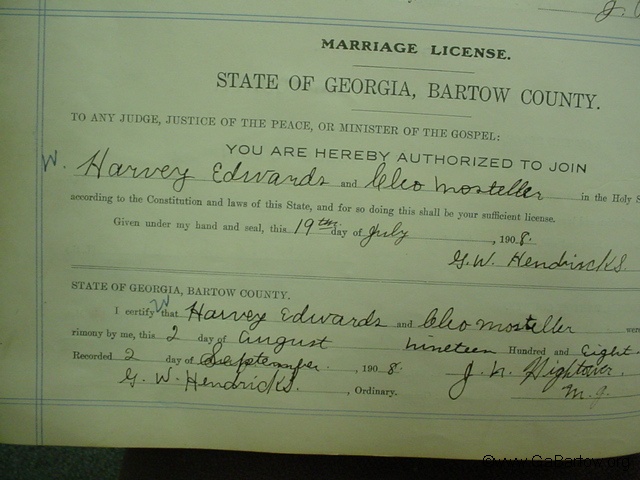 J.
MARRIAGE LICENSE.
STATE OF GEORGIA, BARTOW COUNTY.
TO ANY JUDGE, JUSTICE OF THE PEACE, OR MINISTER OF THE GOSPEL:
YOU ARE HEREBY AUTHORIZED TO JOIN
W. Harvey Edwards and Cleo Mosteller in the Holy S
according to the Constitution and laws of this State, and for so doing this shall be your sufficient license.
Given under my hand and seal, this 19th day of July, 1908.
G. W. Hendricks.
STATE OF GEORGIA, BARTOW COUNTY.
I certify that W Harvey Edwards and Cleo Mosteller were
rimony by me, this 2 day of August nineteen Hundred and Eight.
Recorded 2 day of September, 1908. J. N. Hightower.
G. W. Hendricks., Ordinary. M. G.
©www.GaBartow.org